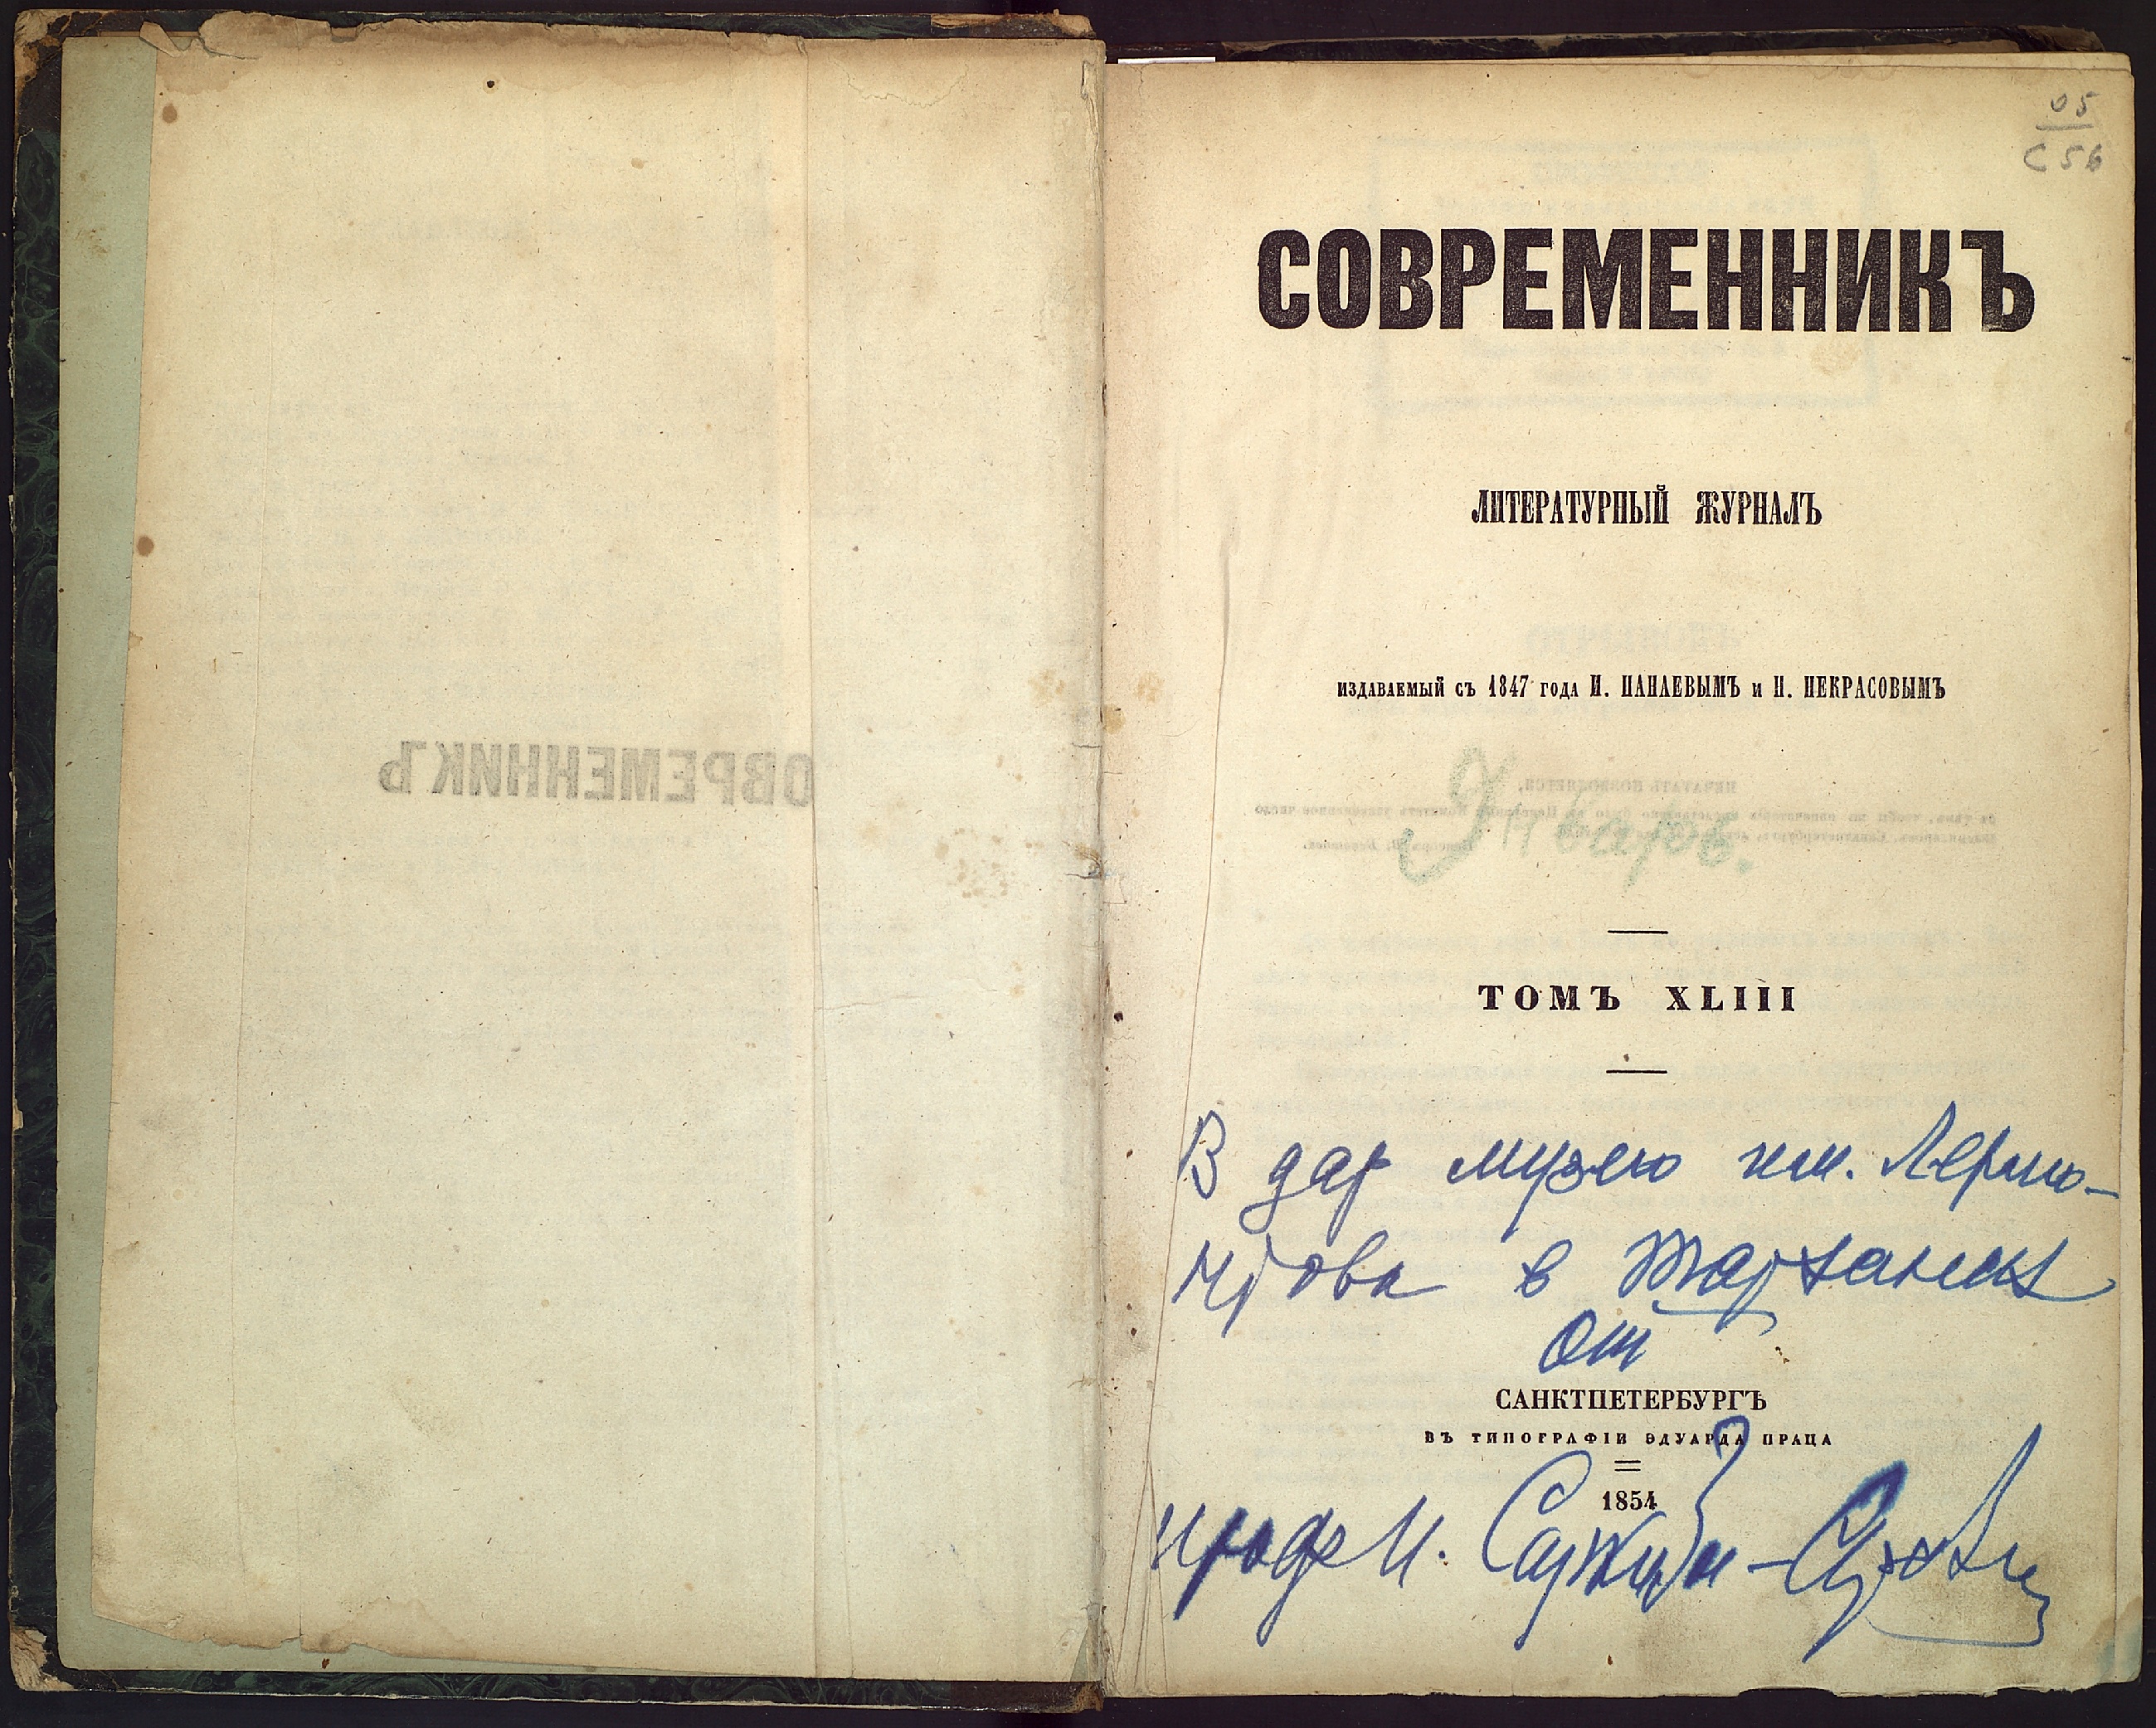 ОВРЕМЕННИКЪ
05
С56
СОВРЕМЕННИКЪ
ЛИТЕРАТУРНЫЙ ЖУРНАЛЪ
ИЗДАВАЕМЫЙ СЪ 1847 ГОДА И. ПАНАЕВЫМЪ И Н. НЕКРАСОВЫМЪ
Январь.
ТОМЪ XLIII
В дар музею им. Лермо-
нтова в Тарханах
от
САНКТПЕТЕРБУРГЪ
ВЪ ТИПОГРАФІИ ЭДУАРДА ПРАЦА
1854
проф И.